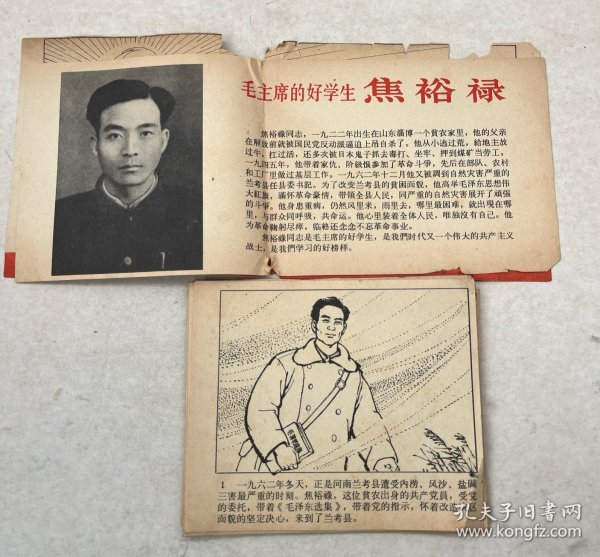 毛主席的好学生 焦裕禄
焦裕祿同志，一九二二年出生在山东淄博一个貧农家里，他的父亲
在解放前就被国民党反动派逼迫上吊自杀了。他从小逃过荒，給地主放
过牛，扛过活，还多次被日本鬼子抓去毒打、坐牢，押到煤矿当劳工。
一九四五年，他带着家仇、阶級恨参加了革命斗爭，先后在部队、农村
和工厂里做过基层工作。一九六二年十二月他又被調到自然灾害严重的
兰考县任县委书記。为了改变兰考县的貧困面貌，他高举毛泽东思想伟
大紅旗，滿怀革命豪情，带領全县人民，同严重的自然灾害展开了頑强
的斗爭。他身患重病，仍然风里来，雨里去，哪里最困难，就出現在哪
里，与群众同呼吸，共命运。他心里装着全体人民，唯独沒有自己。他
为革命鞠躬尽瘁，临終还念念不忘革命事业。
焦裕祿同志是毛主席的好学生，是我們时代又一个伟大的共产主义
战士，是我們学习的好榜样。
毛泽东选集
1 一九六二年冬天，正是河南兰考县遭受內涝、风沙、盐碱
三害最严重的时刻。焦裕祿，这位貧农出身的共产党員，受党
的委托，带着《毛泽东选集》，带着党的指示，怀着改造
面貌的坚定决心，来到了兰考县。
孔夫子旧书网
kongfz.com